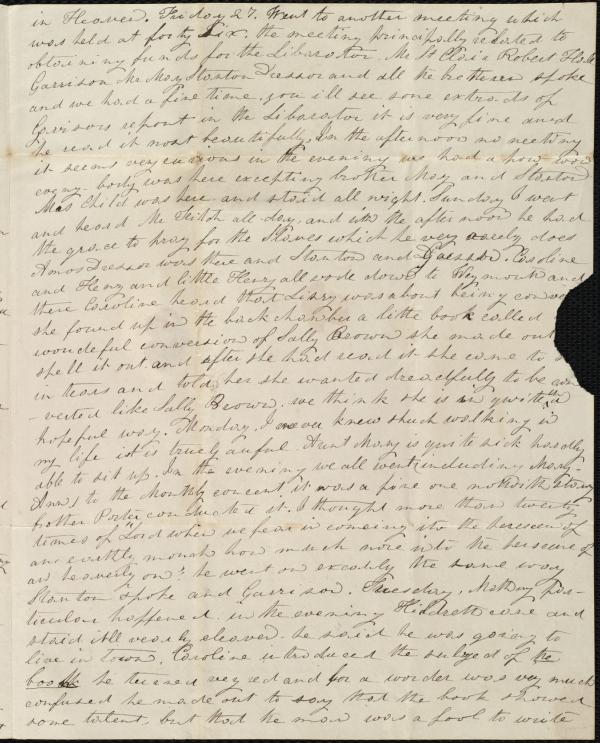 in Heaven. Friday 27. Went to another meeting which
was held at forty six. the meeting principally related to
obtaining funds for the Libarator. Mr St Clair Robert
Garrison Mr May Stanton Dressor and all the bretheren spoke
and we had a fine time. you ill see some extracts of
Garisors report in the Libarator it is very fine and
he read it most beautifully. In the afternoon no meeting
it seems very curious in the evening we had a pow wow
every-body was here excepting brother May and Stanton
Mrs Child was here and staid all night. Sunday I went
and heard Mr Fitch all day, and in the after noon he had
the grace to pray for the Slaves which he very rarely does
Amos Dressor was there and Stanton and Dressor. Caroline
and Henry and little Henry all rode down to Weymouth and
there Caroline heard that Lizzy was about being
she found up in the back chamber a little book called
wondeful conversion of Sally Brown she made out
spell it out and after she had read it she came to
in tears and told her she wanted dreadfully to be con
-verted like Sally Brown, we think she is in quite a
hopeful way. Monday, I never knew shuch walking in
my life it is truely auful. Aunt Mary is quite sick hardly
able to sit up. In the evening we all went including Mary-
Ann, to the Monthly concert it was a fine one
father Porter conducted it. I thought more than twenty
times of "Lord when we fear in comeing into the preseence of
an earthly monah how much more into the presence of
an heavenly on". he went on excatly the same way
Stanton spoke and Garrison. Tuesday, Nothing par-
ticular happened in the evening Hildreth came and
staid itll nearly eleaven. he said he was going to
live in town. Caroline introduced the subject of the
book he turned very red and for a wonder was very much
confused he made out to say that the book showed
some talent, but that the man was a fool to write